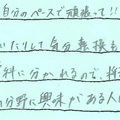 自分のペースで頑張って!!
いたりして気分転換も
科に分かれるので、
分野に興味がある人